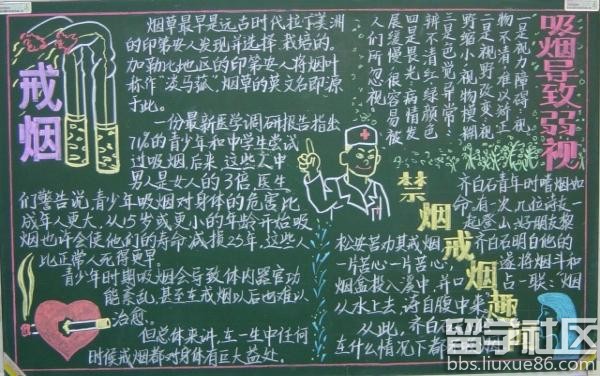 戒烟
烟草最早是远古时代拉丁美洲
的印第安人发现并选择、栽培的。
加勒比地区的印第安人将烟叶
称作“淡马菰”,烟草的英文名即源
于此。
一份最新医学调研报告指出
71%的青少年和中学生尝试
过吸烟。后来,这些人中
男人是女人的3倍,医生
们警告说,青少年吸烟对身体的危害比
成年人更大,从15岁或更小的年龄开始吸
烟也许会使他们的寿命减损25年,这些人
比正常人死得更早。
青少年时期吸烟会导致体内器官功
能紊乱,甚至在戒烟以后也难以
治愈。
但总体来讲,在一生中任何
时候戒烟都对身体有巨大益处。
吸烟导致弱视
一是视力障碍,视
物不清,难以矫正
二是视野改变,视
野缩小,视物模糊
三是色觉异常,
辨不清红绿颜色
四是畏光,病情发
展缓慢,很容易被
人们所忽视
禁烟戒烟趣闻
齐白石青年时嗜烟如
命,有一次,几位诗友一
起登山,好朋友黎
松安苦力其戒烟,齐白石明白他的
一片苦心,
遂将烟斗和
烟盒投入溪中,并口占一联:“烟
从水上去,诗自腹中来
从此,齐白
在什么情况下都
留学社区
bbs.liuxue86.com